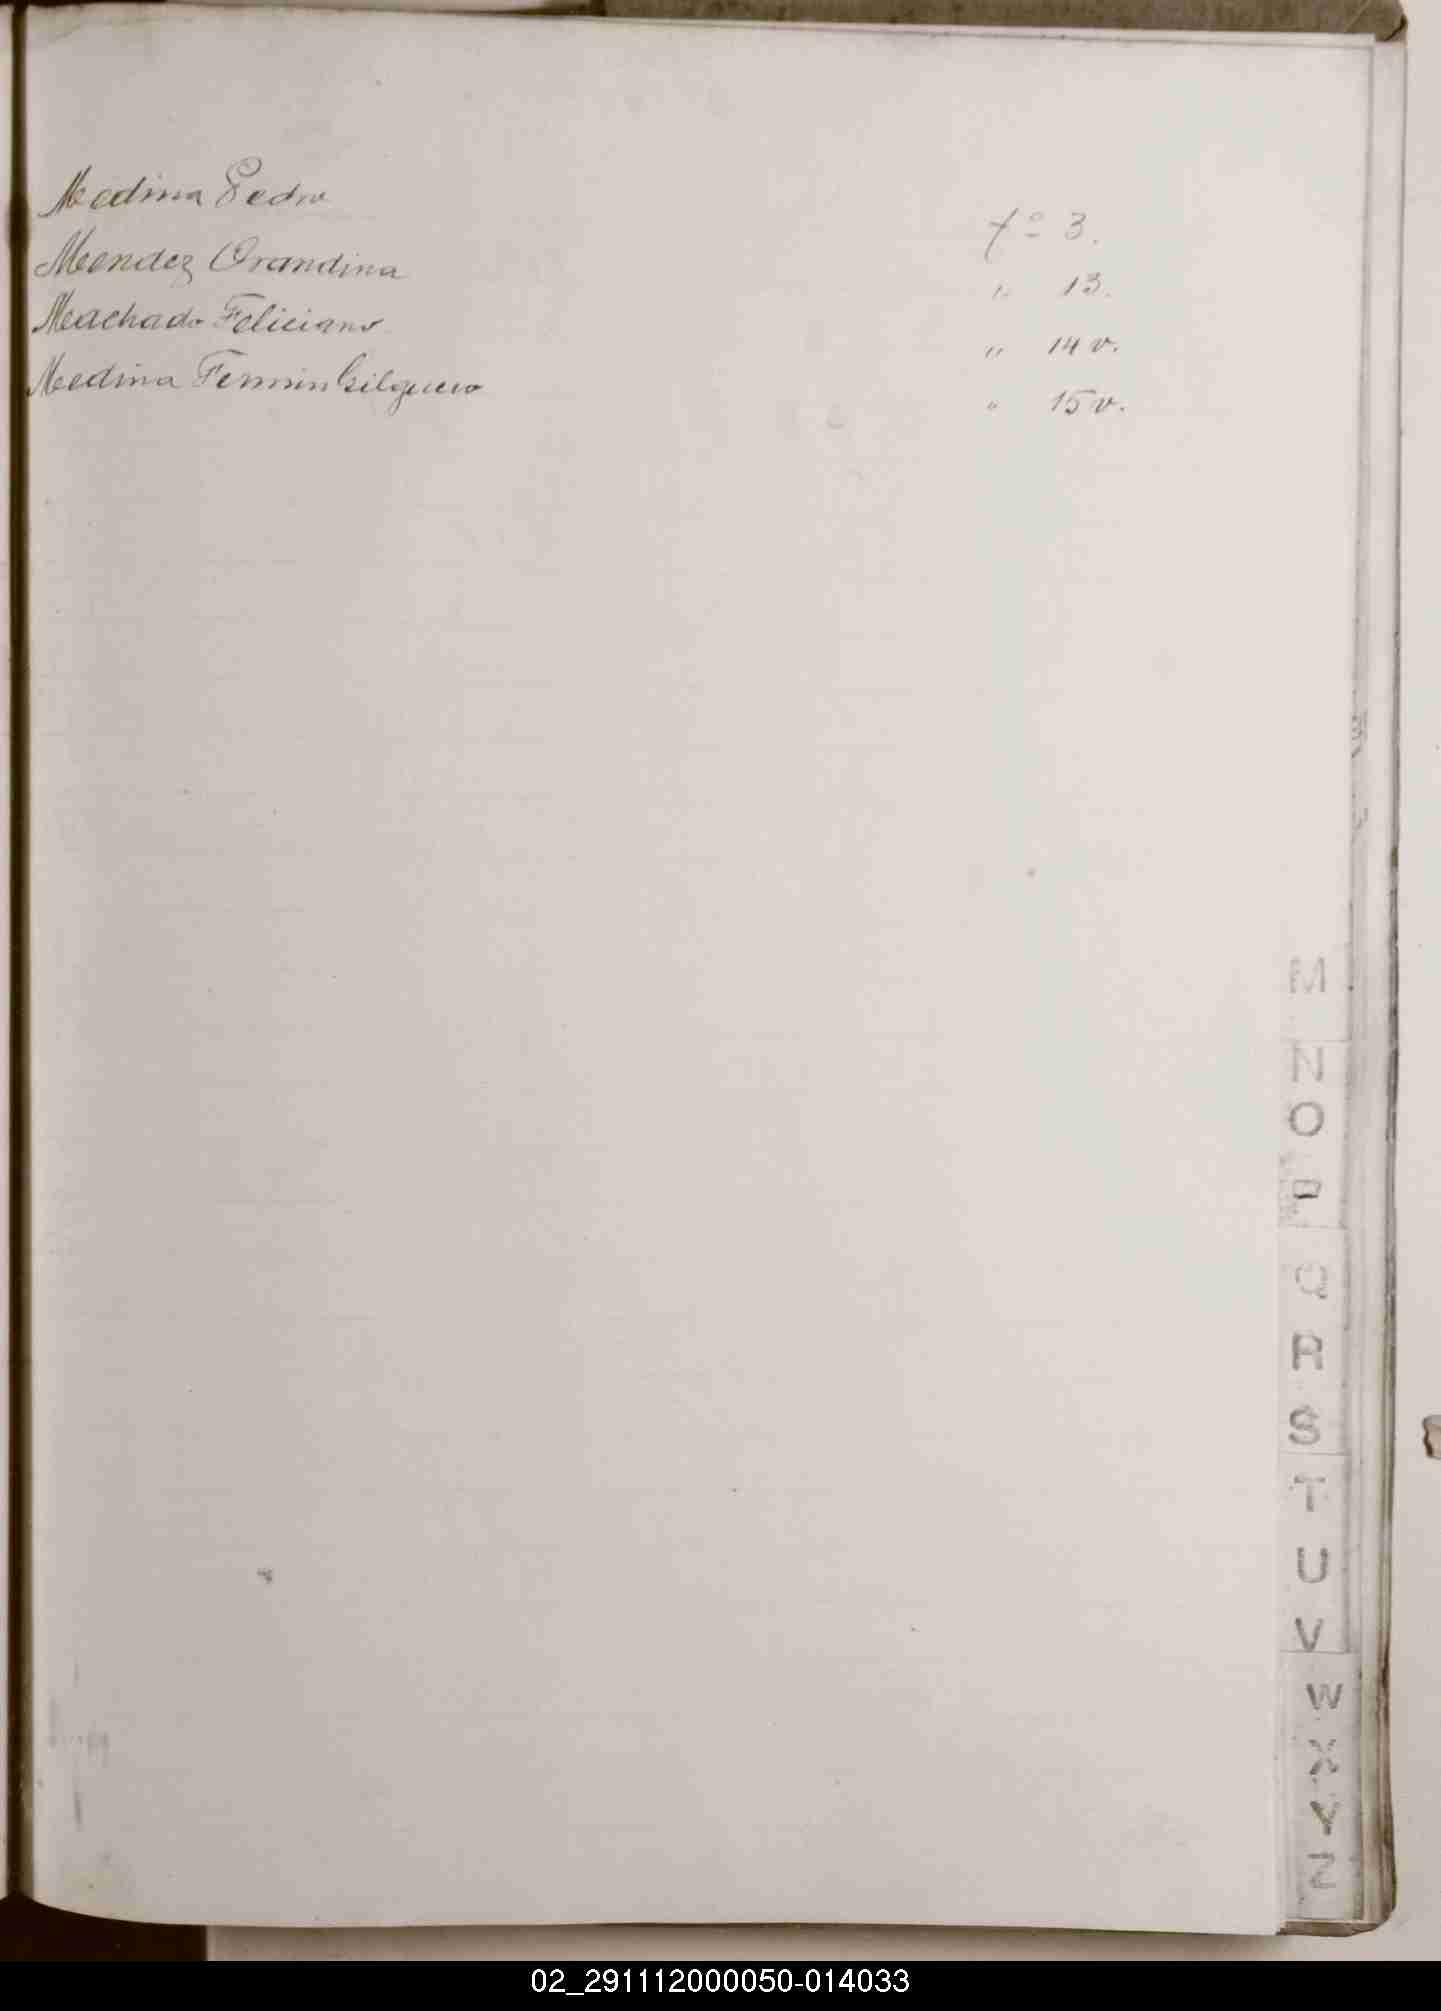 Medina Pedro fº 3.
Mendez Orandina " 13.
Machado Feliciano " 14 v.
Medina Fermin Gilguero " 15 v.
M
N
O
P
Q
R
S
T
U
V
W
X
Y
Z
02_291112000050-014033